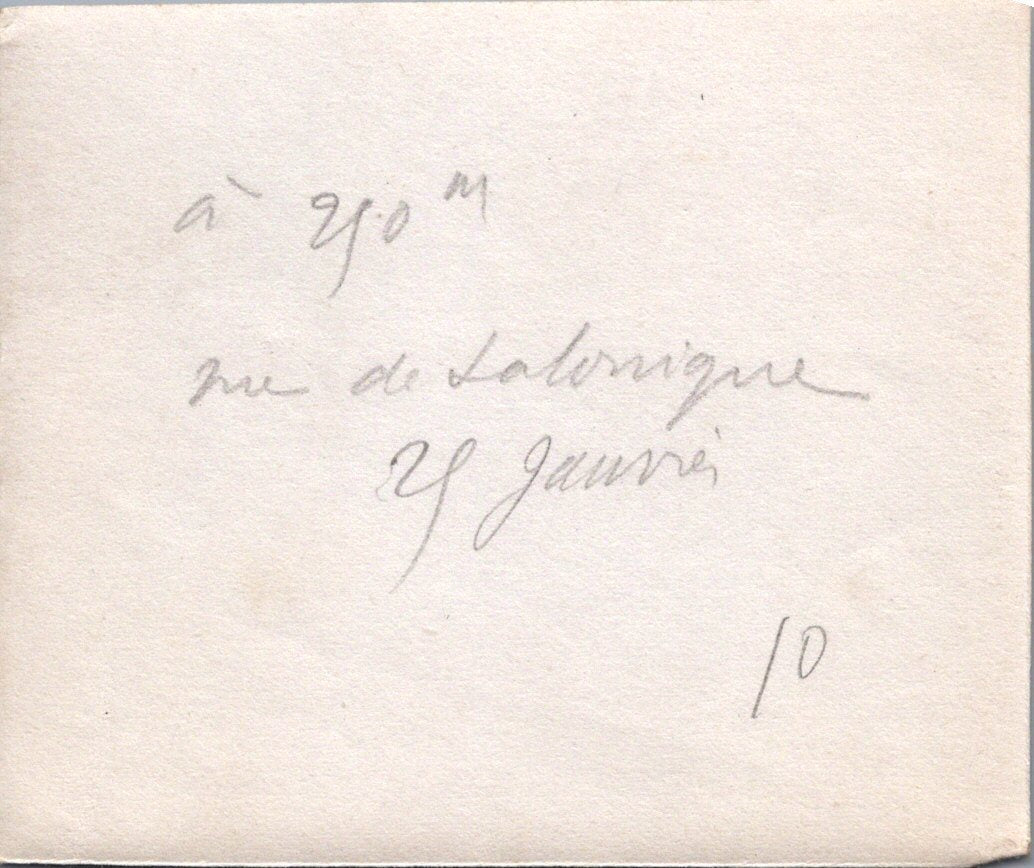 à 250 m
vue de Salonique
25 Janvier
10